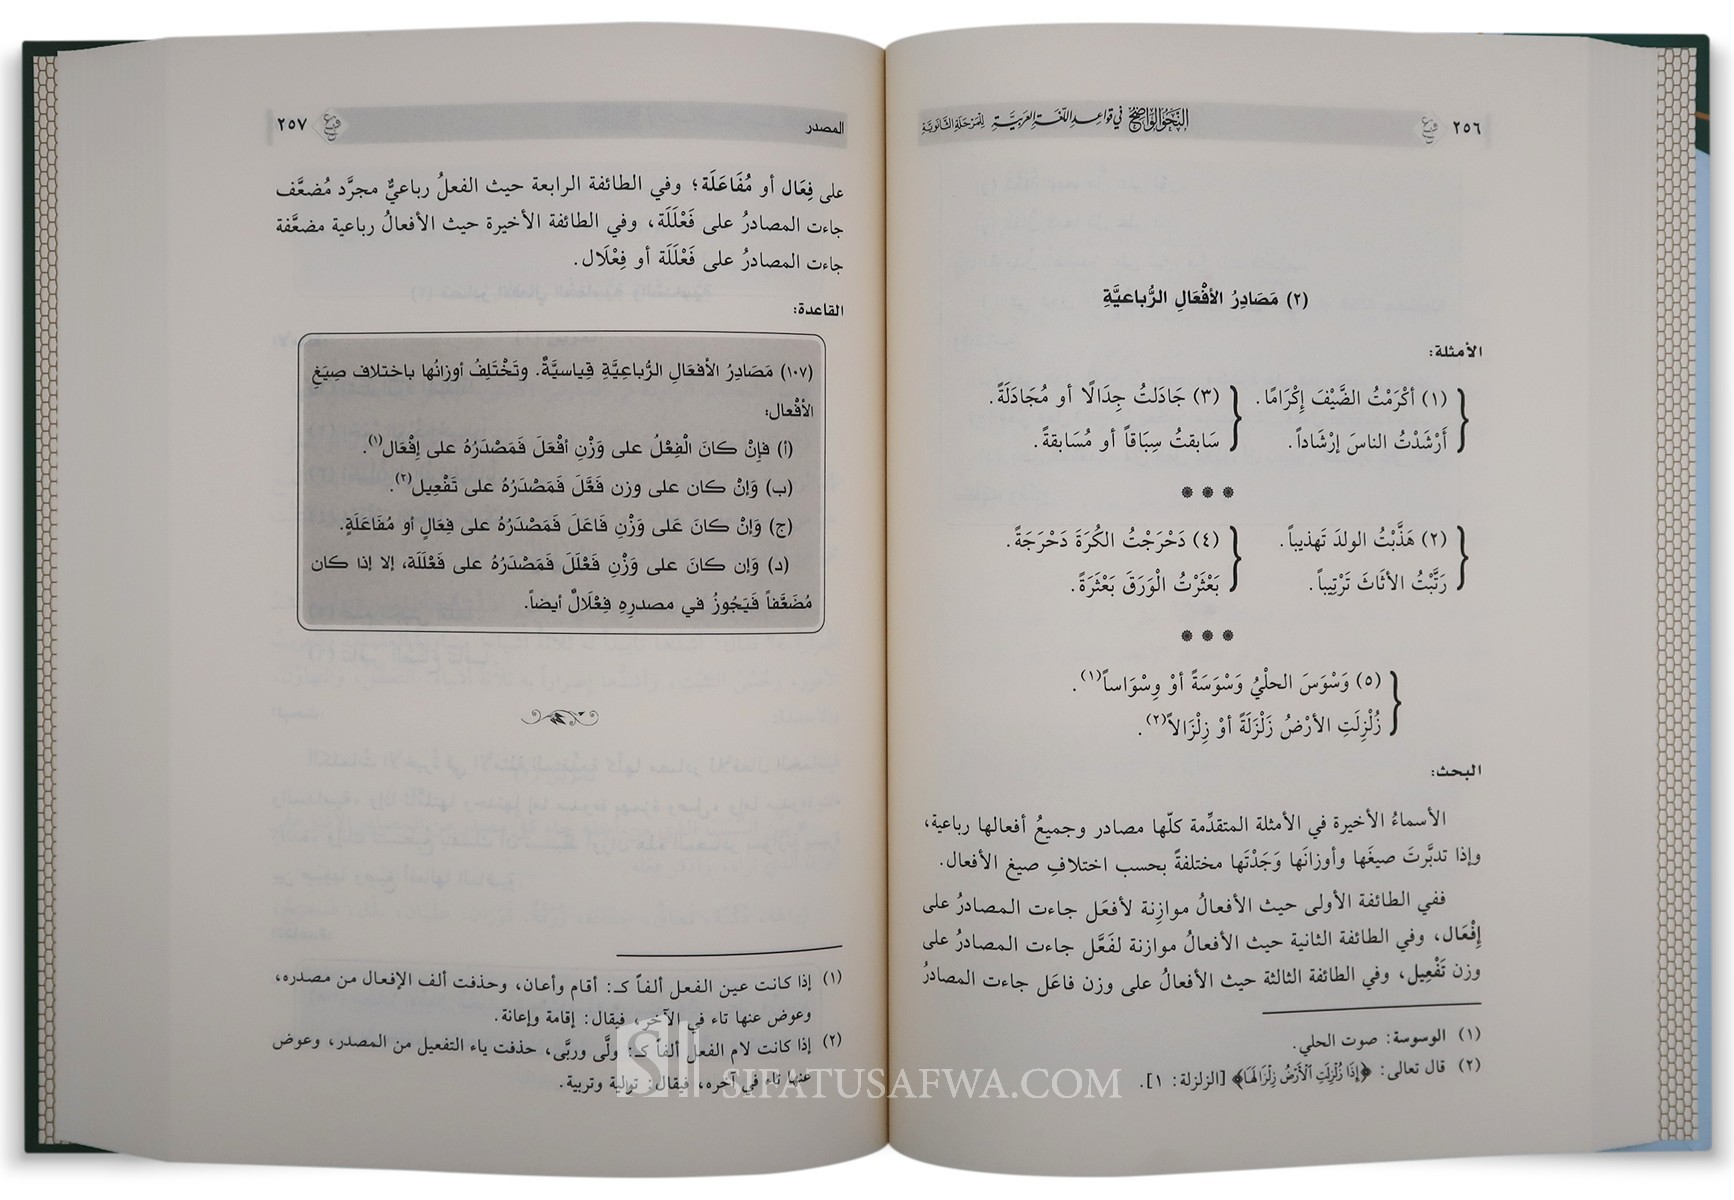 ٢٥٦ النَّحْوُ الوَاضِحُ في قواعد اللّغَة العَرَبيَّةِ لِلمَرْحَلَةِ الثَّانَوِيَّةِ
(٢) مَصَادِرُ الأفْعَالِ الرُّباعيَّةِ
الأمثلة:
(١) أكْرَمْتُ الضَّيْفَ إكْرَامًا. (٣) جَادَلتُ جِدَالًا أو مُجَادَلَةً.
أَرْشَدْتُ الناسَ إرْشَاداً. سَابقتُ سِبَاقاً أو مُسَابقةً.
(٢) هَذَّبْتُ الولدَ تَهذيباً. (٤) دَحْرَجْتُ الكُرَةَ دَحْرَجَةً.
رَتَّبْتُ الأثَاثَ تَرْتِيباً. بَعْثَرْتُ الْوَرَقَ بَعْثَرَةً.
(٥) وَسْوَسَ الحلْيُ وَسْوَسَةً أوْ وِسْوَاساً(١).
زُلْزِلَتِ الأرْضُ زَلْزَلَةً أوْ زِلْزَالاً(٢).
البحث:
الأسماءُ الأخيرة في الأمثلة المتقدِّمة كلّها مصادر وجميعُ أفعالها رباعية،
وإذا تدبَّرتَ صيغَها وأوزانَها وَجَدْتَها مختلفةً بحسب اختلافِ صيغ الأفعال.
ففي الطائفة الأولى حيث الأفعالُ موازِنة لأفعَل جاءت المصادرُ على
إفْعَال، وفي الطائفة الثانية حيث الأفعالُ موازنة لفَعَّل جاءت المصادرُ على
وزن تَفْعِيل، وفي الطائفة الثالثة حيث الأفعالُ على وزن فاعَل جاءت المصادرُ
(١) الوسوسة: صوت الحلي.
(٢) قال تعالى: ﴿إِذَا زُلْزِلَتِ ٱلْأَرْضُ زِلْزَالَهَا﴾ [الزلزلة: ١].
المصدر ٢٥٧
على فِعَال أو مُفَاعَلَة؛ وفي الطائفة الرابعة حيث الفعلُ رباعيٌّ مجرَّد مُضعَّف
جاءت المصادرُ على فَعْلَلَة، وفي الطائفة الأخيرة حيث الأفعالُ رباعية مضعَّفة
جاءت المصادرُ على فَعْلَلَة أو فِعْلَال.
القاعدة:
(١٠٧) مَصَادِرُ الأفعَالِ الرُّباعِيَّةِ قِياسيَّةٌ. وتَخْتَلِفُ أوزانُها باختلاف صِيَغِ
الأفْعال:
(أ) فإنْ كانَ الْفِعْلُ على وَزْنِ أفْعَلَ فَمَصْدَرُهُ على إفْعَال(١).
(ب) وَإنْ كان على وزن فَعَّلَ فَمَصْدَرُهُ على تَفْعِيل(٢).
(ج) وَإنْ كانَ عَلى وَزْنِ فَاعَلَ فَمَصْدَرُهُ على فِعَالٍ أو مُفَاعَلَةٍ.
(د) وَإن كانَ على وَزْنِ فَعْلَلَ فَمَصْدَرُهُ على فَعْلَلَة، إلا إذا كان
مُضَعَّفاً فَيَجُوزُ في مصدرِهِ فِعْلَالٌ أيضاً.
(١) إذا كانت عين الفعل ألفاً كـ: أقام وأعان، وحذفت ألف الإفعال من مصدره،
وعوض عنها تاء في الآخر، فيقال: إقامة وإعانة.
(٢) إذا كانت لام الفعل ألفاً كـ: ولَّى وربَّى، حذفت ياء التفعيل من المصدر، وعوض
عنها تاء في آخره، فيقال: تولية وتربية.
SIFATUSAFWA.COM